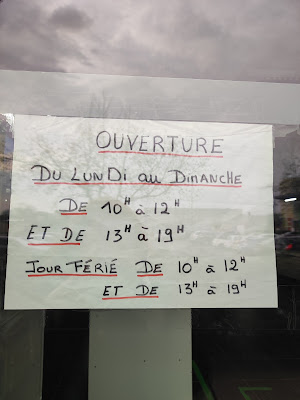 OUVERTURE
DU LUNDi au DimANCHE
DE 10H à 12H
ET DE 13H à 19H
JOUR FÉRIÉ DE 10H à 12H
ET DE 13H à 19H